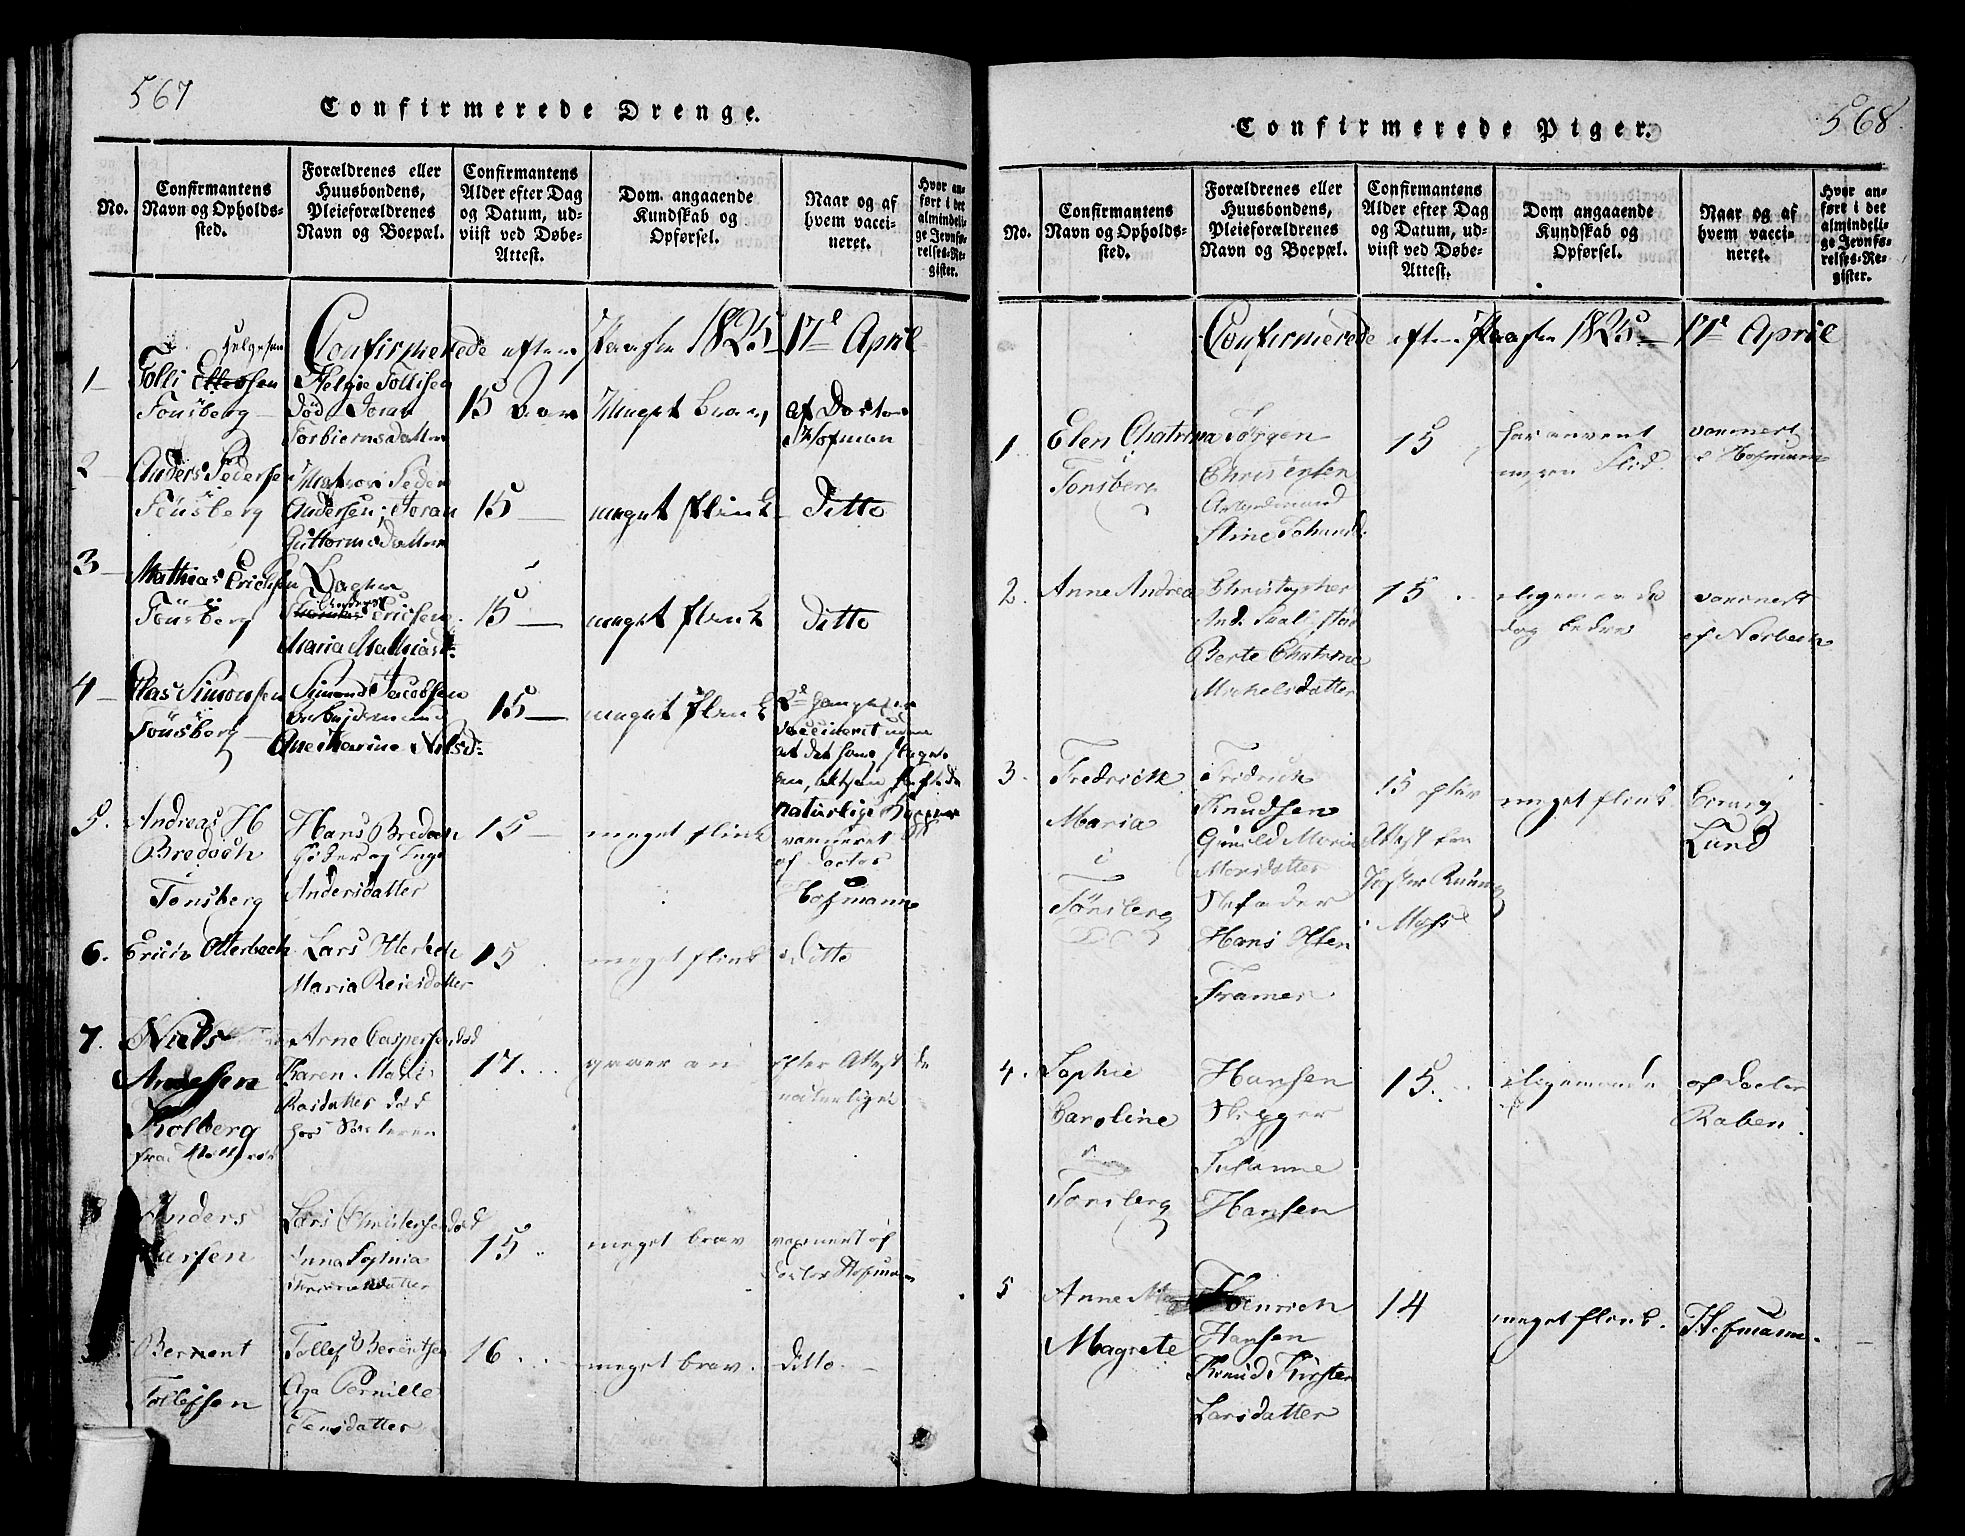 567
Confirmerede Drenge.
No.
Confirmantens
Navn og Opholds-
sted.
Forældrenes eller
Huusbondens,
Pleieforældrenes
Navn og Boepæl.
Confirmantens
Alder efter Dag
og Datum, ud-
viist ved Døbe-
Attest.
Dom. angaaende
Kundskab og
Opførsel.
Naar og af
hvem vacci-
neret.
Hvor an-
ført i det
almindeli-
ge Jevnfø-
relses-Re-
gister.
Confirmerede efter Paaske 1825 17de April
1
Helgesen
Tolli
Tönsberg
Helgie Tollisen
död Joran
Torbiernsdatter
15
Meget brav,
af Doctor
Hofman
2
Anders Pedersen
Tönsberg
Peder
Andersen; Joran
Guttormsdatter
15
meget flink
Ditto
3
Mathias Erichsen
Tönsberg
Anders
Ericsen
Maria Mathiasd:
15
meget flink
Ditto
4
Simonsen
Tönsberg
Simond Jacobsen
arbejdsmand
Ane Karine Nilsd:
15
meget flink
vaccineret uden
at det
naturlige Kopper
5.
Andreas H
Bredoch
i
Tonsberg
Hans Bredoch
og Inge
Andersdatter
15
meget flink
vaxineret
af Doctor
Hofmann
6.
Erich Otterbech
Lars Otterbech
Maria Reiersdatter
15
meget flink
Ditto
7.
Niels
Arnesen
Kolberg
fra
Arne Caspersen död
Karen Marie
död
hos
17.
efter Attest de
naturlige
8
Anders
Larsen
Lars Christensen död
Anna Sophia
15
meget brav
vaxinert af
Doctor Hofmann
Bernent
Tollefsen
Tollef Berentsen
Aga Pernille
Jensdatter
16
meget brav.
Ditto
568
Confirmerede Piger.
No.
Confirmantens
Navn og Opholds-
sted.
Forældrenes eller
Huusbondens,
Pleieforældrenes
Navn og Boepæl.
Confirmantens
Alder efter Dag
og Datum, ud-
viist ved Døbe-
Attest.
Dom angaaende
Kundskab og
Opførsel.
Naar og af
hvem vacci-
neret.
Hvor an-
ført i det
almindeli-
ge Jevnfø-
relses-Re-
gister.
Confirmerede efter Paaske 1825 17de April
1
Elen Chatrina
i
Tonsberg
Jörgen
Christensen
Arbeidsmand
Stine
15
har anvent
megen Flid.
vaxinert
af Hofmann
2.
Anne Andrea
Christopher
And.
Berte Chatrine
Michelsdatter
15
ligemaade
dog bedre
vaxinert
af Norbech
3.
Fredrich
Maria
i
Tönsberg
Fridrich
Knudsen
Gunild Maria
Stefader
Hans Olsen
Framer
15 efter
Attest fra
i Moss
meget flink
Lund
4.
Sophie
Caroline
i
Tonsberg
Hansen
Skipper
Susanne
Hansen
15.
ligemaade
af Doctor
Raben.
5
Anne
Magrete
Henrich
Hansen
Larsdatter
14
meget flink.
Hofmann.